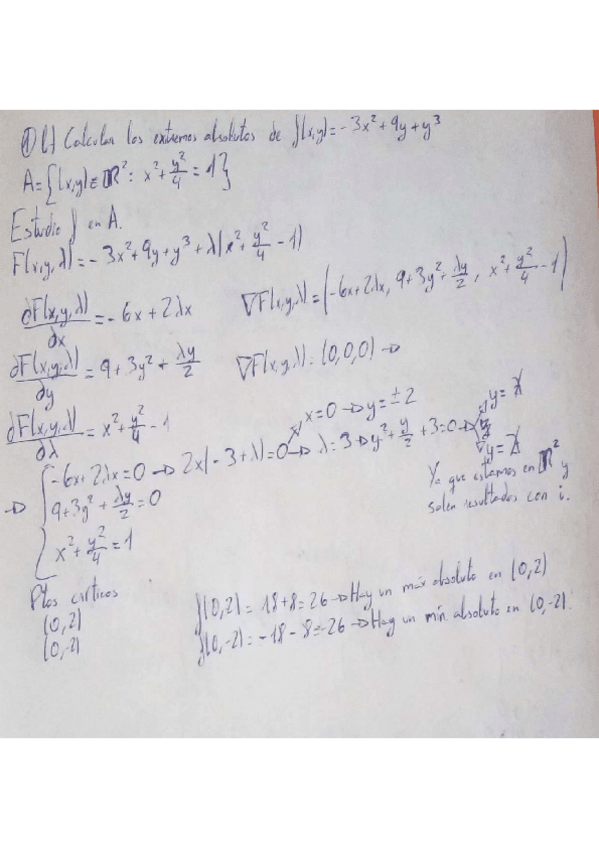 ① b) Calcular los extremos absolutos de f(x,y)=-3x²+9y+y³
A={(x,y)∈ℝ²: x²+y²/4=1}
Estudio f en A.
F(x,y,λ)=-3x²+9y+y³+λ(x²+y²/4-1)
∂F(x,y,λ)/∂x=-6x+2λx
∇F(x,y,λ)=(-6x+2λx, 9+3y²+λy/2, x²+y²/4-1)
∂F(x,y,λ)/∂y=9+3y²+λy/2
∇F(x,y,λ)=(0,0,0)→
∂F(x,y,λ)/∂λ=x²+y²/4-1
x=0→y=±2
→ -6x+2λx=0→2x(-3+λ)=0→λ=3→y²+y/2+3=0→ y=
9+3y²+λy/2=0
y=
x²+y²/4=1
Ya que estamos en ℝ² y
salen resultados con i.
Ptos críticos
(0,2)
f(0,2)=18+8=26→Hay un máx absoluto en (0,2)
(0,-2)
f(0,-2)=-18-8=-26→Hay un mín. absoluto en (0,-2).